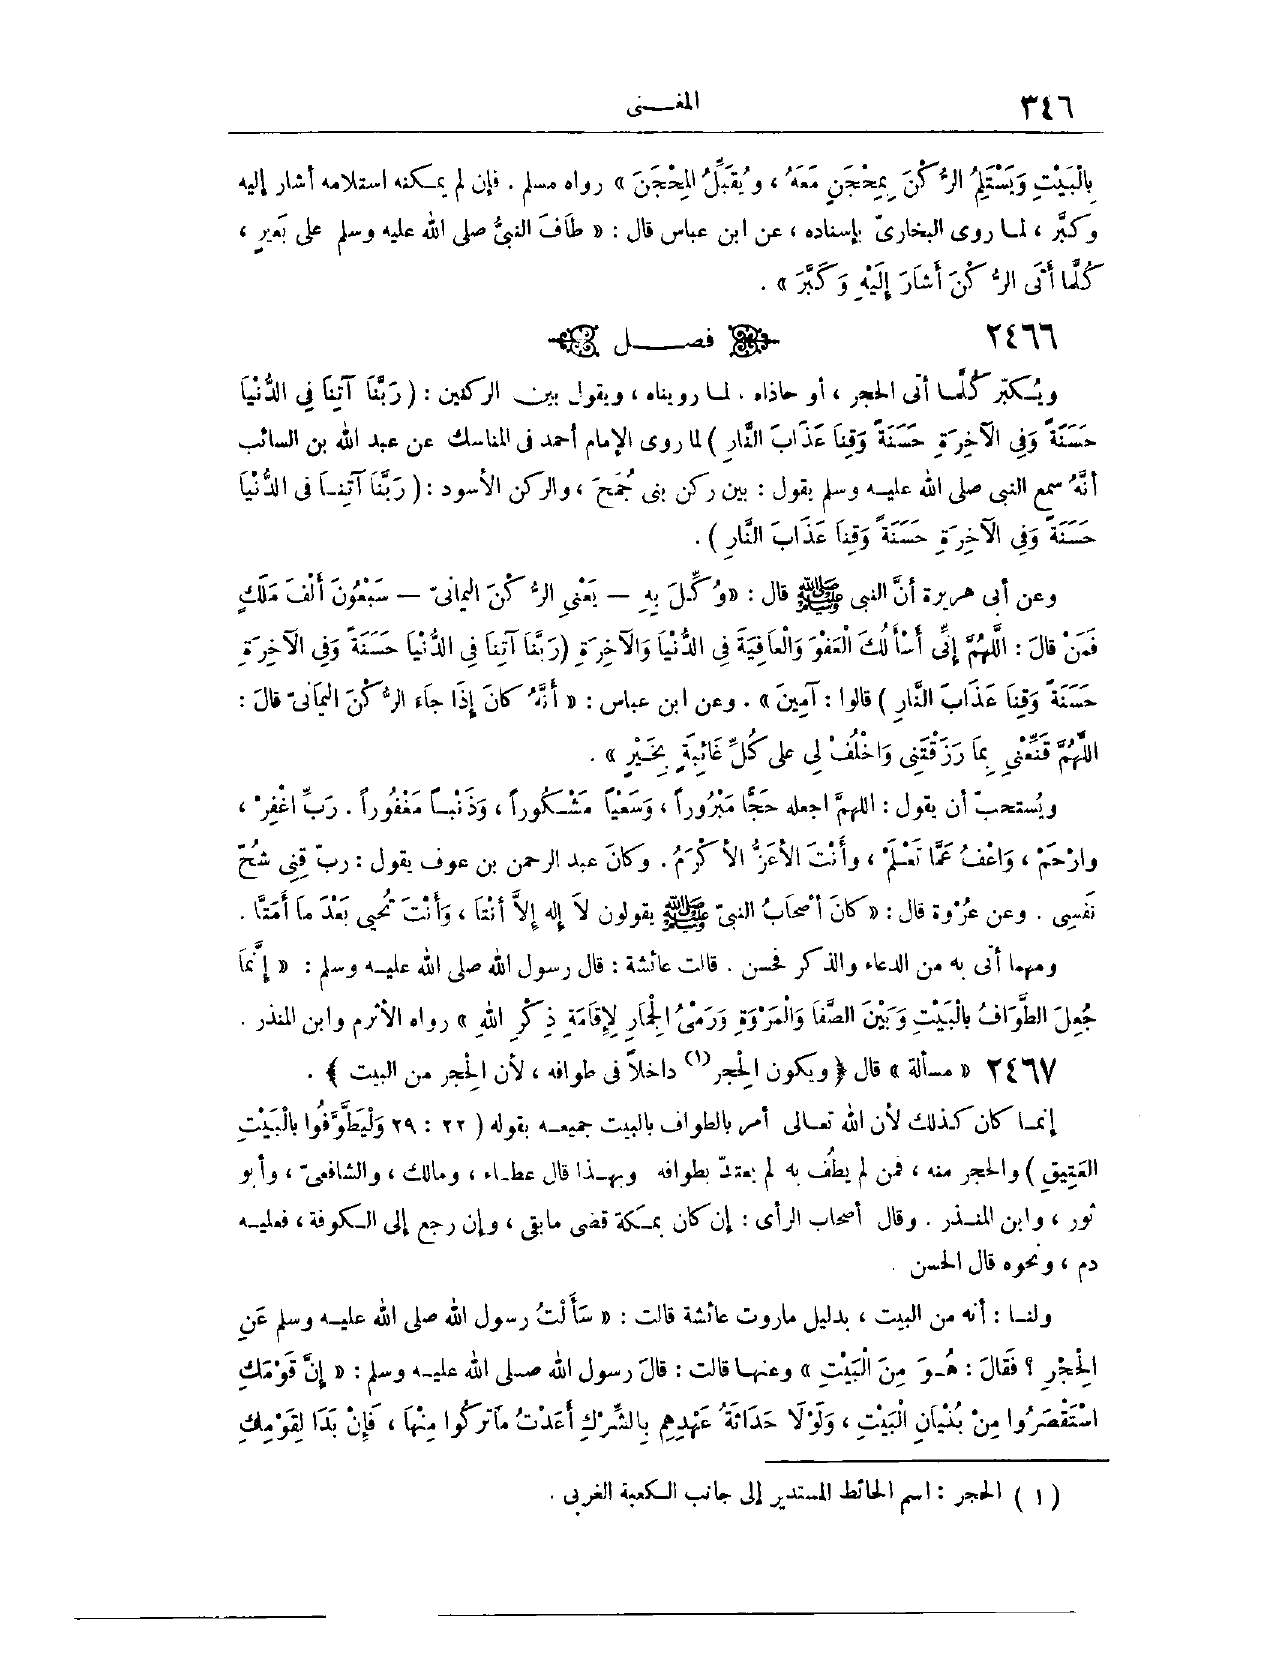 ٣٤٦ المغـــنى
بِالْبَيْتِ وَيَسْتَلِمُ الرُّكْنَ بِمِحْجَنٍ مَعَهُ ، ويُقَبِّلُ الْمِحْجَنَ » رواه مسلم . فإن لم يمكنه استلامه أشار إليه
وكَبَّر ، لمـا روى البخارىّ بإسناده ، عن ابن عباس قال : « طَافَ النبىُّ صلى الله عليه وسلم على بَعيرٍ ،
كُلَّما أَتَى الرُّكْنَ أَشَارَ إِلَيْهِ وَكَبَّرَ » .
٢٤٦٦ فصـــــل
ويُـكبّر كُلَّمـا أتى الحجر ، أو حاذاه . لمـا رويناه ، ويقول بين الركنين : ( رَبَّنَا آتِنَا فِى الدُّنْيَا
حَسَنَةً وَفِى الآخِرَةِ حَسَنَةً وَقِنَا عَذَابَ النَّارِ ) لما روى الإمام أحمد فى المناسك عن عبد الله بن السائب
أنَّهُ سمع النبى صلى الله عليـه وسلم يقول : بين ركن بنى جُمَحَ ، والركن الأسود : ( رَبَّنَا آتِنـا فى الدُّنْيَا
حَسَنَةً وَفِى الآخِرَةِ حَسَنَةً وَقِنا عَذَابَ النَّارِ ) .
وعن أبى هريرة أنَّ النبى ﷺ قال : « وُكِّـلَ بِهِ — يَعْنِى الرُّكْنَ اليمانىّ — سَبْعُونَ أَلْفَ مَلَكٍ
فَمَنْ قالَ : اللَّهُمَّ إِنِّى أَسْأَلُكَ الْعَفْوَ وَالْعَافِيَةَ فِى الدُّنْيَا وَالآخِرَةِ ( رَبَّنَا آتِنا فِى الدُّنْيَا حَسَنَةً وَفِى الآخِرَةِ
حَسَنَةً وَقِنَا عَذَابَ النَّارِ ) قالوا : آمِينَ » . وعن ابن عباس : « أَنَّهُ كَانَ إِذَا جَاءَ الرُّكْنَ اليمانىّ قالَ :
اللَّهُمَّ قَنِّعْنِى بِمَا رَزَقْتَنِى وَاخْلُفْ لِى على كُلِّ غَائِبَةٍ بِخَـيْرٍ » .
ويُستحبّ أن يقول : اللهمّ اجعله حَجًّا مَبْرُوراً ، وَسَعْياً مَشْـكُوراً ، وَذَنْبـاً مَغْفُوراً . رَبِّ اغْفِرْ ،
وارْحَمْ ، وَاعْفُ عَمَّا تَعْـلَمْ ، وأَنْتَ الأَعَزُّ الأَكْرَمُ . وكَانَ عبد الرحمن بن عوف يقول : ربّ قِنِى شُحّ
نَفْسِى . وعن عُرْوة قال : « كَانَ أَصْحَابُ النبىّ ﷺ يقولون لاَ إله إلاَّ أَنْتَا ، وَأَنْتَ تُحْيِى بَعْدَ مَا أَمَتَّا .
ومهما أتى به من الدعاء والذكر فحسن . قالت عائشة : قال رسول الله صلى الله عليـه وسلم : « إِنَّمَا
جُعِلَ الطَّوَافُ بِالْبَيْتِ وَبَيْنَ الصَّفَا وَالْمَرْوَةِ وَرَمْىُ الْجِمَارِ لإِقَامَةِ ذِكْرِ اللهِ » رواه الأثرم وابن المنذر .
٢٤٦٧ « مسألة » قال ﴿ ويكون الْحِجر (١) داخلاً فى طوافه ، لأن الْحِجر من البيت ﴾ .
إنمـا كان كـذلك لأن الله تعـالى أمر بالطواف بالبيت جميعـه بقوله ( ٢٢ : ٢٩ وَلْيَطَّوَّفُوا بِالْبَيْتِ
العَتِيقِ ) والحجر منه ، فمن لم يطُف به لم يعتدّ بطوافه وبهـذا قال عطـاء ، ومالك ، والشافعىّ ، وأبو
ثور ، وابن المنـذر . وقال أصحاب الرأى : إن كان بمـكة قضى مابقى ، وإن رجع إلى الـكوفة ، فعليـه
دم ، ونحوه قال الحسن .
ولنـا : أنه من البيت ، بدليل ماروت عائشة قالت : « سَأَلْتُ رسول الله صلى الله عليـه وسلم عَنِ
الْحِجْرِ ؟ فَقَالَ : هُـوَ مِنَ الْبَيْتِ » وعنهـا قالت : قالَ رسول الله صـلى الله عليـه وسلم : « إِنَّ قَوْمَكِ
اسْتَقْصَرُوا مِنْ بُنْيَانِ الْبَيْتِ ، وَلَوْلَا حَدَاثَةُ عَهْدِهِمِ بِالشِّرْكِ أَعَدْتُ مَاتَركُوا مِنْهَا ، فَإِنْ بَدَا لِقَوْمِكِ
( ١ ) الحجر : اسم الحائط المستدير إلى جانب الـكعبة الغربى .